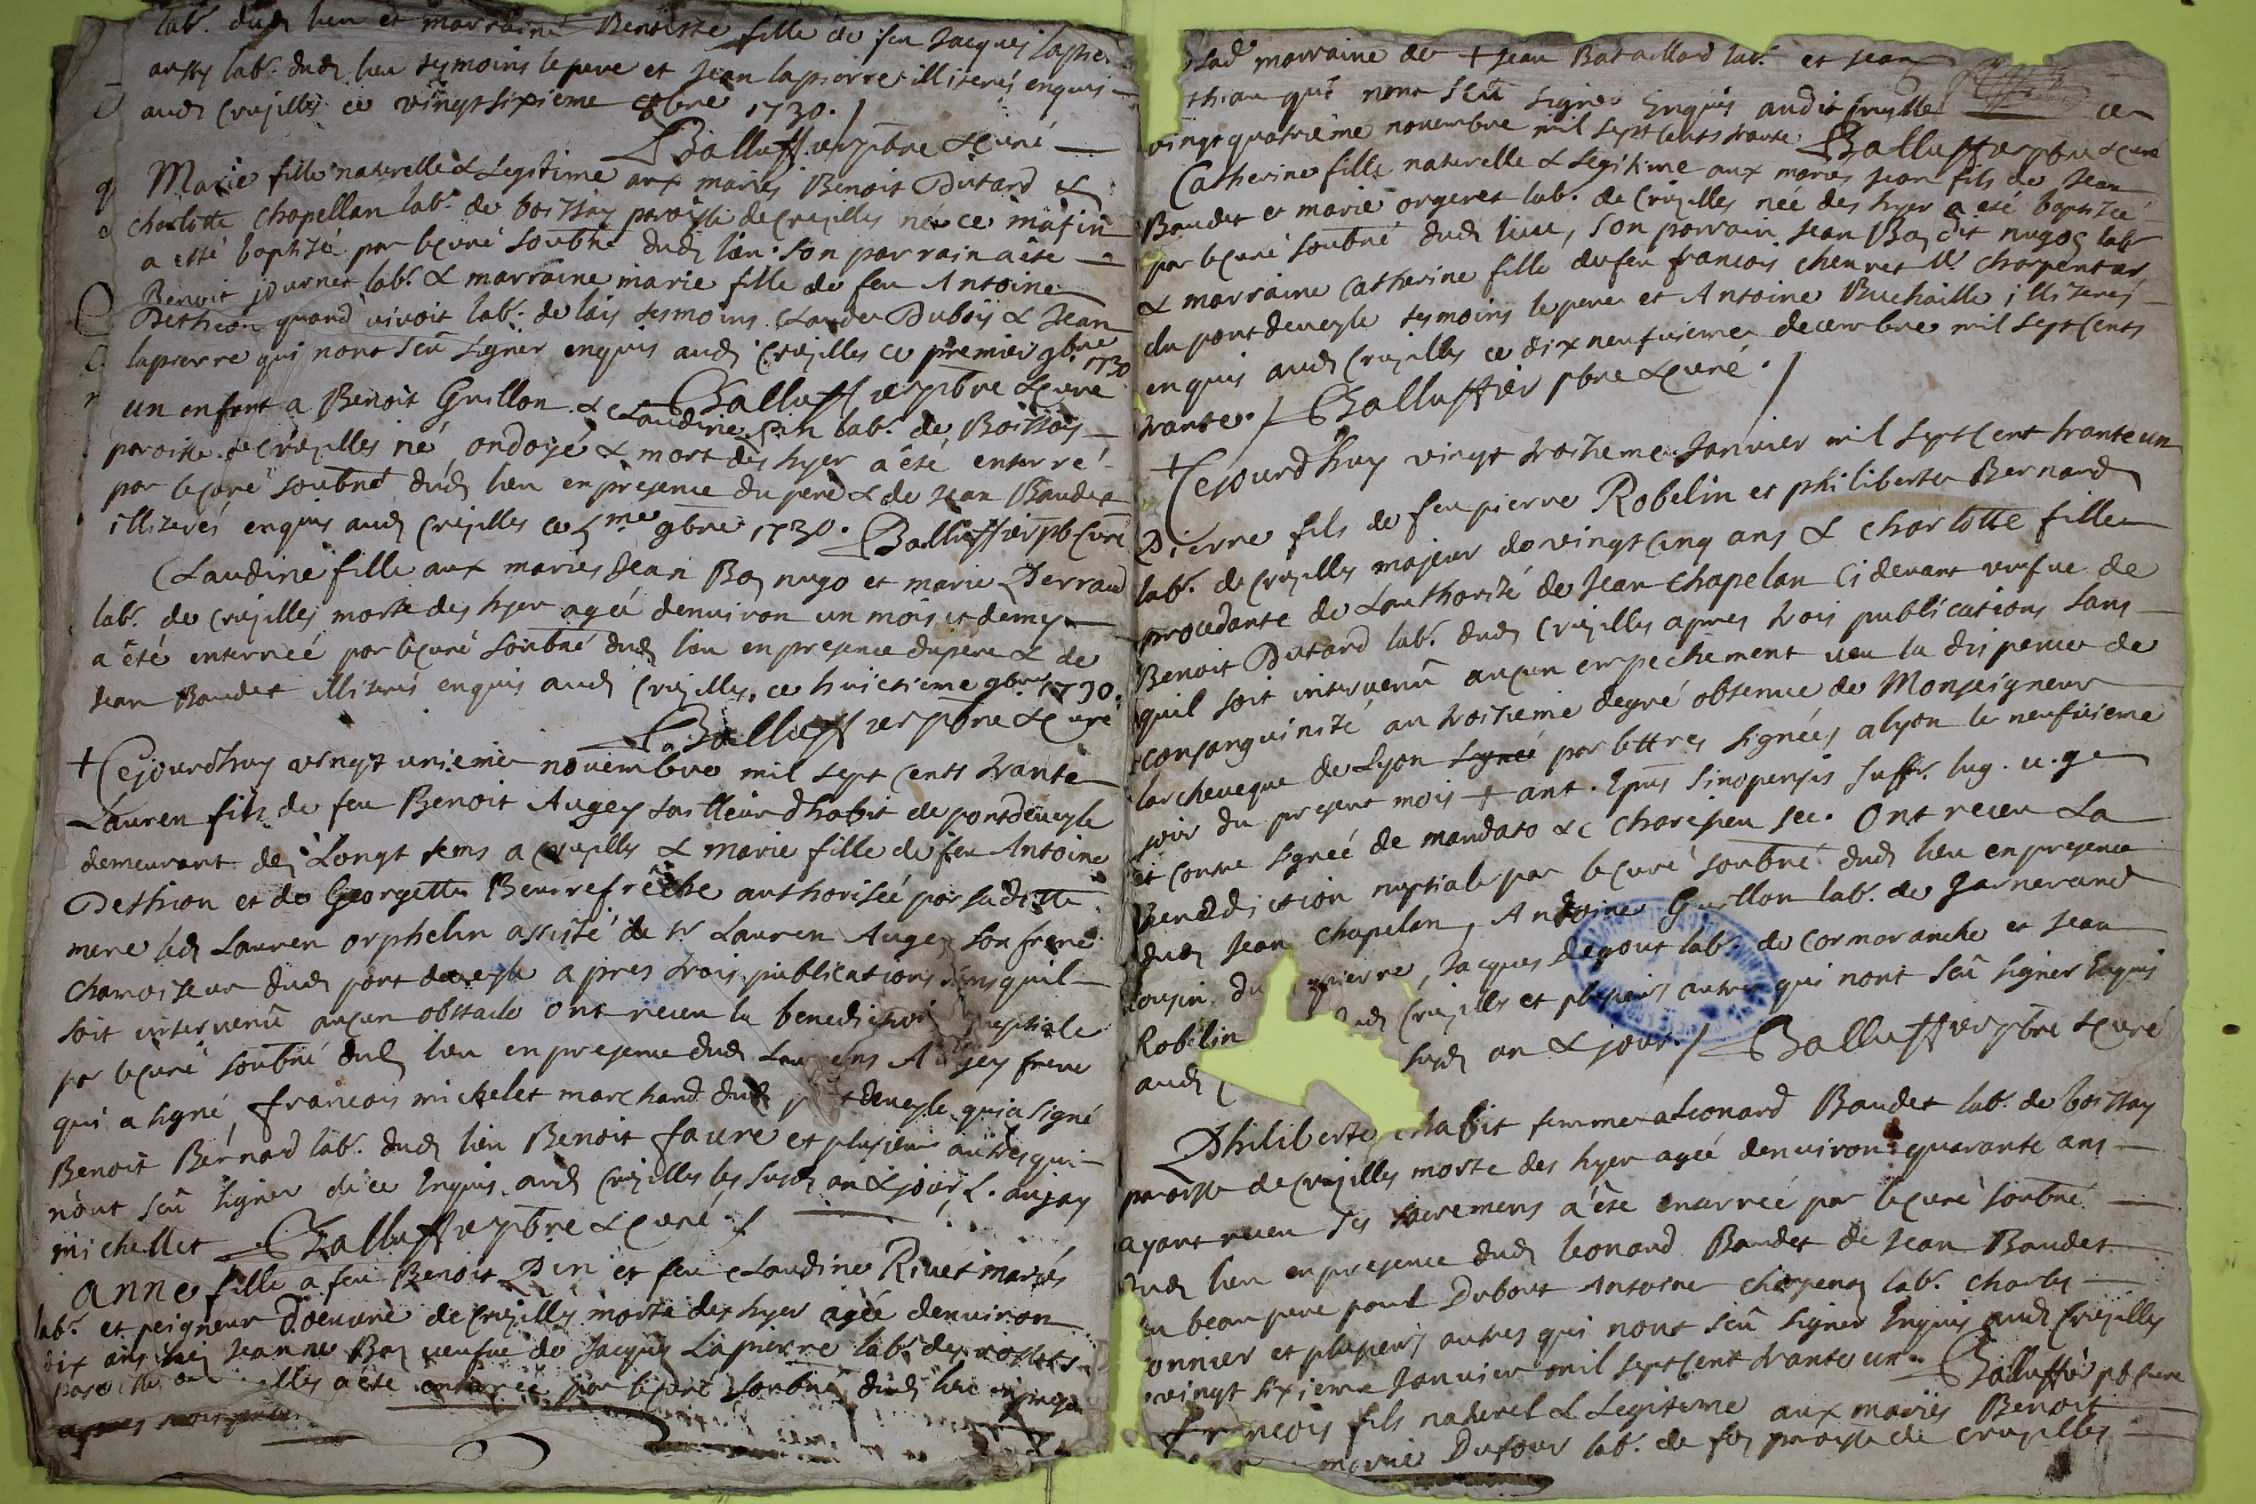 lab.r dud. lieu et marraine Benoiste fille de feu Jacques lapie
aussy lab.r dud. lieu tesmoins le pere et Jean lapierre illiterés enquis
aud. Crusilles ce vingt sixieme 8bre 1730./
Balluffier pbre & curé
Marie fille naturelle & Legitime aux mariés Benoit Dutard &
charlotte chapellan lab.r de boissay paroisse de Crusilles née ce matin
a esté baptisée par le curé soubné dud. lieu. son parrain a été
Benoit journet lab.r & marraine marie fille de feu Antoine
Dethion quand vivoit lab.r de lais tesmoins Claude Duboys & Jean
lapierre qui n'ont sçu signer enquis aud. Crusilles ce premier 9bre 1730
Balluffier pbre & curé
un enfant a Benoit Guillon & Claudine Pin lab.r de Boissay
paroisse de Crusilles né, ondoyé & mort dès hyer a été enterré
par le curé soubné dud. lieu en presence du pere & de Jean Baudet
illiterés enquis aud. Crusilles ce 5me 9bre 1730. Balluffier pb curé
Claudine fille aux mariés Jean Bay nugo et marie Perraud
lab.r de Crusilles morte des hyer agée denviron un mois et demy
a été enterrée par le curé soubné dud. lieu en presence du pere & de
Jean Baudet illiterés enquis aud. Crusilles, ce huictieme 9bre 1730.
Balluffier pbre & curé
+ Cejourdhuy vingt unieme novembre mil sept cents trante
Lauren fils de feu Benoit Augey tailleur dhabit de pontdeveyle
demeurant de Longt tems a Crusilles & marie fille de feu Antoine
Dethion et de Georgette Beurrefrêche authorisée par saditte
mere led. Lauren orphelin assisté de Sr Lauren Augey son frere
chamoiseur dud. pont de veyle apres trois publications sans quil
soit intervenû aucun obstacle ont reçeu la benediction nuptiale
par le curé soubné dud. lieu en presence dud. Laurens Augey frere
qui a signé, francois michelet marchand dud. pontdeveyle qui a signé
Benoit Bernard lab.r dud. lieu Benoit faure et plusieurs autres qui
nont sçû signer de ce Enquis aud. Crusilles les susd. an & jour, L. aujay
michellet Balluffier pbre & curé./
anne fille a feu Benoit Pin et feu Claudine Rivet mariés
lab.r et peigneur Doeuvre de Crusilles morte des hyer agée denviron
dix ans Jeanne Bay veufve de Jacques Lapierre lab.r des
a été enterrée par le curé soubné dud. lieu
apres trois
lad. marraine de + Jean Bataillard lab.r et Jean
thion qui nont sçû signer Enquis audit Crusille ce
vingt quatrieme novembre mil sept cents trante. Balluffier pbre & curé
Catherine fille naturelle & Legitime aux mariés Jean fils de Jean
Baudet et marie orgeret lab.r de Crusilles née des hyer a eté baptisée
par le curé soubné dud. lieu, son parrain Jean Bay dit nugoz lab.r
& marraine Catherine fille de feu francois chevret Me charpentier
du pontdeveyle tesmoins le pere et Antoine Buchaille illiterés
enquis aud. Crusilles ce dix neufvieme decembre mil sept cents
trante./ Balluffier pbre & curé./
+ Cejourdhuy vingt troisieme Janvier mil sept cent trante un
Pierre fils de feu pierre Robelin et philiberte Bernard
lab.r de Crusilles majeur de vingt cinq ans & charlotte fille
procedante de Lauthorité de Jean Chapelan Ci devant veufve de
Benoit Dutard lab.r dud. Crusilles apres trois publications sans
quil soit intervenû aucun empechement veu la dispence de
consanguinité au troisieme degré obtenue de Monseigneur
larcheveque de Lyon signée par lettres signées a lyon le neufvieme
jour du present mois + ant. Epus Sinopensis suffr. lug. v. g
et contre signée de mandato &c Charepieu sec. Ont reçeu La
Benediction nuptiale par le curé soubné dud. lieu en presence
dud. Jean Chapelan, Antoine Guillon lab.r de Garnerand
cousin du pierre, Jacques degout lab.r de cormoranche et Jean
Robelin dud. Crusilles et plusieurs autres qui nont sçû signer Enquis
aud. C susd. an & jour./ Balluffier pbre & curé
Philiberte chabit femme a Leonard Baudet lab.r de boissay
paroisse de Crusilles morte des hyer agée denviron quarante ans
ayant reçeu ses sacremens a été enterrée par le curé soubné
dud. lieu en presence dud. leonard Baudet de Jean Baudet
beau pere paul Dubout Antoine charpenay lab.r charles
onnier et plusieurs autres qui nont sçû signer Enquis aud. Crusilles
vingt sixieme Janvier mil sept cent trante un. Balluffier pb curé
francois fils naturel & Legitime aux mariés Benoit
marie Dufour lab.r de fay paroisse de Crusilles